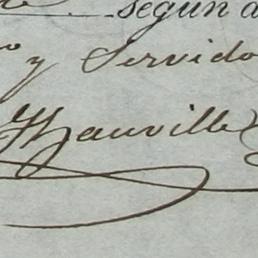 segun a
y Servido
Hauville